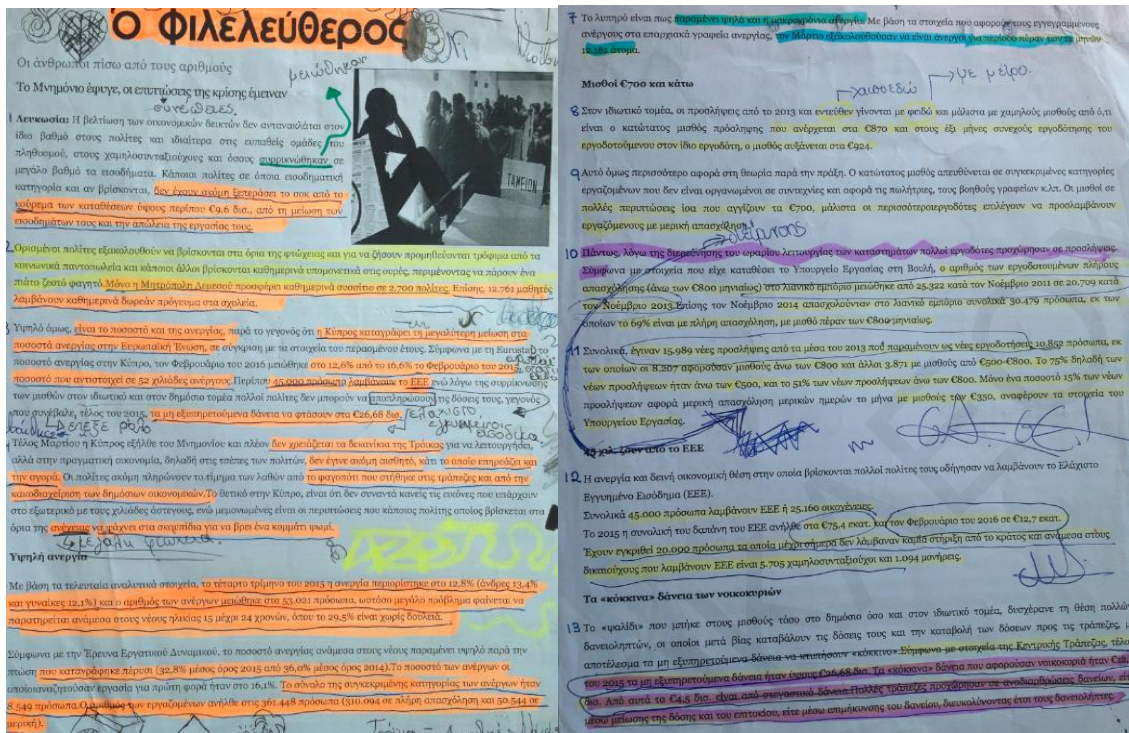 Ο ΦΙΛΕΛΕΥΘΕΡΟΣ
Οι άνθρωποι πίσω από τους αριθμούς
μειώθηκαν
Το Μνημόνιο έφυγε, οι επιπτώσεις της κρίσης έμειναν
συνέπειες
1 Λευκωσία: Η βελτίωση των οικονομικών δεικτών δεν αντανακλάται στον
ίδιο βαθμό στους πολίτες και ιδιαίτερα στις ευπαθείς ομάδες του
πληθυσμού, στους χαμηλοσυνταξιούχους και όσους συρρικνώθηκαν σε
μεγάλο βαθμό τα εισοδήματα. Κάποιοι πολίτες σε όποια εισοδηματική
κατηγορία και αν βρίσκονται, δεν έχουν ακόμη ξεπεράσει το σοκ από το
κούρεμα των καταθέσεων ύψους περίπου €9.6 δισ., από τη μείωση των
εισοδημάτων τους και την απώλεια της εργασίας τους.
ΤΑΜΕΙΟΝ
2 Ορισμένοι πολίτες εξακολουθούν να βρίσκονται στα όρια της φτώχειας και για να ζήσουν προμηθεύονται τρόφιμα από τα
κοινωνικά παντοπωλεία και κάποιοι άλλοι βρίσκονται καθημερινά υπομονετικά στις ουρές, περιμένοντας να πάρουν ένα
πιάτο ζεστό φαγητό.Μόνο η Μητρόπολη Λεμεσού προσφέρει καθημερινά συσσίτιο σε 2.700 πολίτες. Επίσης, 12.761 μαθητές
λαμβάνουν καθημερινά δωρεάν πρόγευμα στα σχολεία.
Υψηλό όμως, είναι το ποσοστό και της ανεργίας, παρά το γεγονός ότι η Κύπρος καταγράφει τη μεγαλύτερη μείωση στα
ποσοστά ανεργίας στην Ευρωπαϊκή Ένωση, σε σύγκριση με τα στοιχεία του περασμένου έτους. Σύμφωνα με τη Eurostat το
ποσοστό ανεργίας στην Κύπρο, τον Φεβρουάριο του 2016 μειώθηκε στο 12,6% από το 16,6% το Φεβρουάριο του 2015,
ποσοστό που αντιστοιχεί σε 52 χιλιάδες ανέργους. Περίπου 45.000 πρόσωπα λαμβάνουν το ΕΕΕ ενώ λόγω της συρρίκνωσης
των μισθών στον ιδιωτικό και στον δημόσιο τομέα πολλοί πολίτες δεν μπορούν να αποπληρώσουν τις δόσεις τους, γεγονός
που συνέβαλε, τέλος του 2015, τα μη εξυπηρετούμενα δάνεια να φτάσουν στα €26,68 δισ.
έπαιξε ρόλο
ελάχιστο
εγγυημένο
εισόδημα
Τέλος Μαρτίου η Κύπρος εξήλθε του Μνημονίου και πλέον δεν χρειάζεται τα δεκανίκια της Τρόικας για να λειτουργήσει,
αλλά στην πραγματική οικονομία, δηλαδή στις τσέπες των πολιτών, δεν έγινε ακόμη αισθητό, κάτι το οποίο επηρεάζει και
την αγορά. Οι πολίτες ακόμη πληρώνουν το τίμημα των λαθών από το φαγοπότι που στήθηκε στις τράπεζες και από την
κακοδιαχείριση των δημόσιων οικονομικών.Το θετικό στην Κύπρο, είναι ότι δεν συναντά κανείς τις εικόνες που υπάρχουν
στο εξωτερικό με τους χιλιάδες άστεγους, ενώ μεμονωμένες είναι οι περιπτώσεις που κάποιος πολίτης οποίος βρίσκεται στα
όρια της ανέχειας να ψάχνει στα σκουπίδια για να βρει ένα κομμάτι ψωμί.
μεγάλη φτώχεια.
Υψηλή ανεργία
Με βάση τα τελευταία αναλυτικά στοιχεία, το τέταρτο τρίμηνο του 2015 η ανεργία περιορίστηκε στο 12,8% (άνδρες 13,4%
και γυναίκες 12,1%) και ο αριθμός των ανέργων μειώθηκε στα 53.021 πρόσωπα, ωστόσο μεγάλο πρόβλημα φαίνεται να
παρατηρείται ανάμεσα στους νέους ηλικίας 15 μέχρι 24 χρονών, όπου το 29.5% είναι χωρίς δουλειά.
Σύμφωνα με την Έρευνα Εργατικού Δυναμικού, το ποσοστό ανεργίας ανάμεσα στους νέους παραμένει υψηλό παρά την
πτώση που καταγράφηκε πέρυσι (32,8% μέσος όρος 2015 από 36,0% μέσος όρος 2014).Το ποσοστό των ανέργων οι
οποίοιαναζητούσαν εργασία για πρώτη φορά ήταν στο 16,1%. Το σύνολο της συγκεκριμένης κατηγορίας των ανέργων ήταν
8.549 πρόσωπα.Ο αριθμός των εργαζομένων ανήλθε στις 361.448 πρόσωπα (310.094 σε πλήρη απασχόληση και 50.544 σε
μερική).
7 Το λυπηρό είναι πως παραμένει ψηλά και η μακροχρόνια ανεργία. Με βάση τα στοιχεία που αφορούν τους εγγεγραμμένους
ανέργους στα επαρχιακά γραφεία ανεργίας, τον Μάρτιο εξακολουθούσαν να είναι άνεργοι για περίοδο πέραν των μηνών
12.161 άτομα.
Μισθοί €700 και κάτω
από εδώ
με μέτρο.
8 Στον ιδιωτικό τομέα, οι προσλήψεις από το 2013 και εντεύθεν γίνονται με φειδώ και μάλιστα με χαμηλούς μισθούς από ό,τι
είναι ο κατώτατος μισθός πρόσληψης που ανέρχεται στα €870 και στους έξι μήνες συνεχούς εργοδότησης του
εργοδοτούμενου στον ίδιο εργοδότη, ο μισθός αυξάνεται στα €924.
9 Αυτό όμως περισσότερο αφορά στη θεωρία παρά την πράξη. Ο κατώτατος μισθός απευθύνεται σε συγκεκριμένες κατηγορίες
εργαζομένων που δεν είναι οργανωμένοι σε συντεχνίες και αφορά τις πωλήτριες, τους βοηθούς γραφείων κ.λπ. Οι μισθοί σε
πολλές περιπτώσεις ίσα που αγγίζουν τα €700, μάλιστα οι περισσότεροιεργοδότες επιλέγουν να προσλαμβάνουν
εργαζόμενους με μερική απασχόληση.
αύξησης
10 Πάντως, λόγω της διεύρυνσης του ωραρίου λειτουργίας των καταστημάτων πολλοί εργοδότες προχώρησαν σε προσλήψεις.
Σύμφωνα με στοιχεία που είχε καταθέσει το Υπουργείο Εργασίας στη Βουλή, ο αριθμός των εργοδοτουμένων πλήρους
απασχόλησης (άνω των €800 μηνιαίως) στο λιανικό εμπόριο μειώθηκε από 25.322 κατά τον Νοέμβριο 2011 σε 20.709 κατά
τον Νοέμβριο 2013.Επίσης τον Νοέμβριο 2014 απασχολούνταν στο λιανικό εμπόριο συνολικά 30.479 πρόσωπα, εκ των
οποίων το 69% είναι με πλήρη απασχόληση, με μισθό πέραν των €800 μηνιαίως.
11 Συνολικά, έγιναν 15.989 νέες προσλήψεις από τα μέσα του 2013 που παραμένουν ως νέες εργοδοτήσεις 10.852 πρόσωπα, εκ
των οποίων οι 8.207 αφορούσαν μισθούς άνω των €800 και άλλοι 3.871 με μισθούς από €500-€800. Το 75% δηλαδή των
νέων προσλήψεων ήταν άνω των €500, και το 51% των νέων προσλήψεων άνω των €800. Μόνο ένα ποσοστό 15% των νέων
προσλήψεων αφορά μερική απασχόληση μερικών ημερών το μήνα με μισθούς των €350, αναφέρουν τα στοιχεία του
Υπουργείου Εργασίας.
45 χιλ. ζουν από το ΕΕΕ
12 Η ανεργία και δεινή οικονομική θέση στην οποία βρίσκονται πολλοί πολίτες τους οδήγησαν να λαμβάνουν το Ελάχιστο
Εγγυημένο Εισόδημα (ΕΕΕ).
Συνολικά 45.000 πρόσωπα λαμβάνουν ΕΕΕ ή 25.160 οικογένειες.
Το 2015 η συνολική του δαπάνη του ΕΕΕ ανήλθε στα €75,4 εκατ. και τον Φεβρουάριο του 2016 σε €12,7 εκατ.
Έχουν εγκριθεί 20.000 πρόσωπα τα οποία μέχρι σήμερα δεν λάμβαναν καμία στήριξη από το κράτος και ανάμεσα στους
δικαιούχους που λαμβάνουν ΕΕΕ είναι 5.705 χαμηλοσυνταξιούχοι και 1.094 μονήρεις.
Τα «κόκκινα» δάνεια των νοικοκυριών
13 Το «ψαλίδι» που μπήκε στους μισθούς τόσο στο δημόσιο όσο και στον ιδιωτικό τομέα, δυσχέρανε τη θέση πολλών
δανειοληπτών, οι οποίοι μετά βίας καταβάλουν τις δόσεις τους και την καταβολή των δόσεων προς τις τράπεζες, με
αποτέλεσμα τα μη εξυπηρετούμενα δάνεια να κτυπήσουν «κόκκινο».Σύμφωνα με στοιχεία της Κεντρικής Τράπεζας, τέλος
του 2015 τα μη εξυπηρετούμενα δάνεια ήταν ύψους €26,68 δισ. Τα «κόκκινα» δάνεια που αφορούσαν νοικοκυριά ήταν
δισ. Από αυτά τα €4,5 δισ. είναι από στεγαστικά δάνεια.Πολλές τράπεζες προχώρησαν σε αναδιαρθρώσεις δανείων, είτε
μέσω μείωσης της δόσης και του επιτοκίου, είτε μέσω επιμήκυνσης του δανείου, διευκολύνοντας έτσι τους δανειολήπτες.